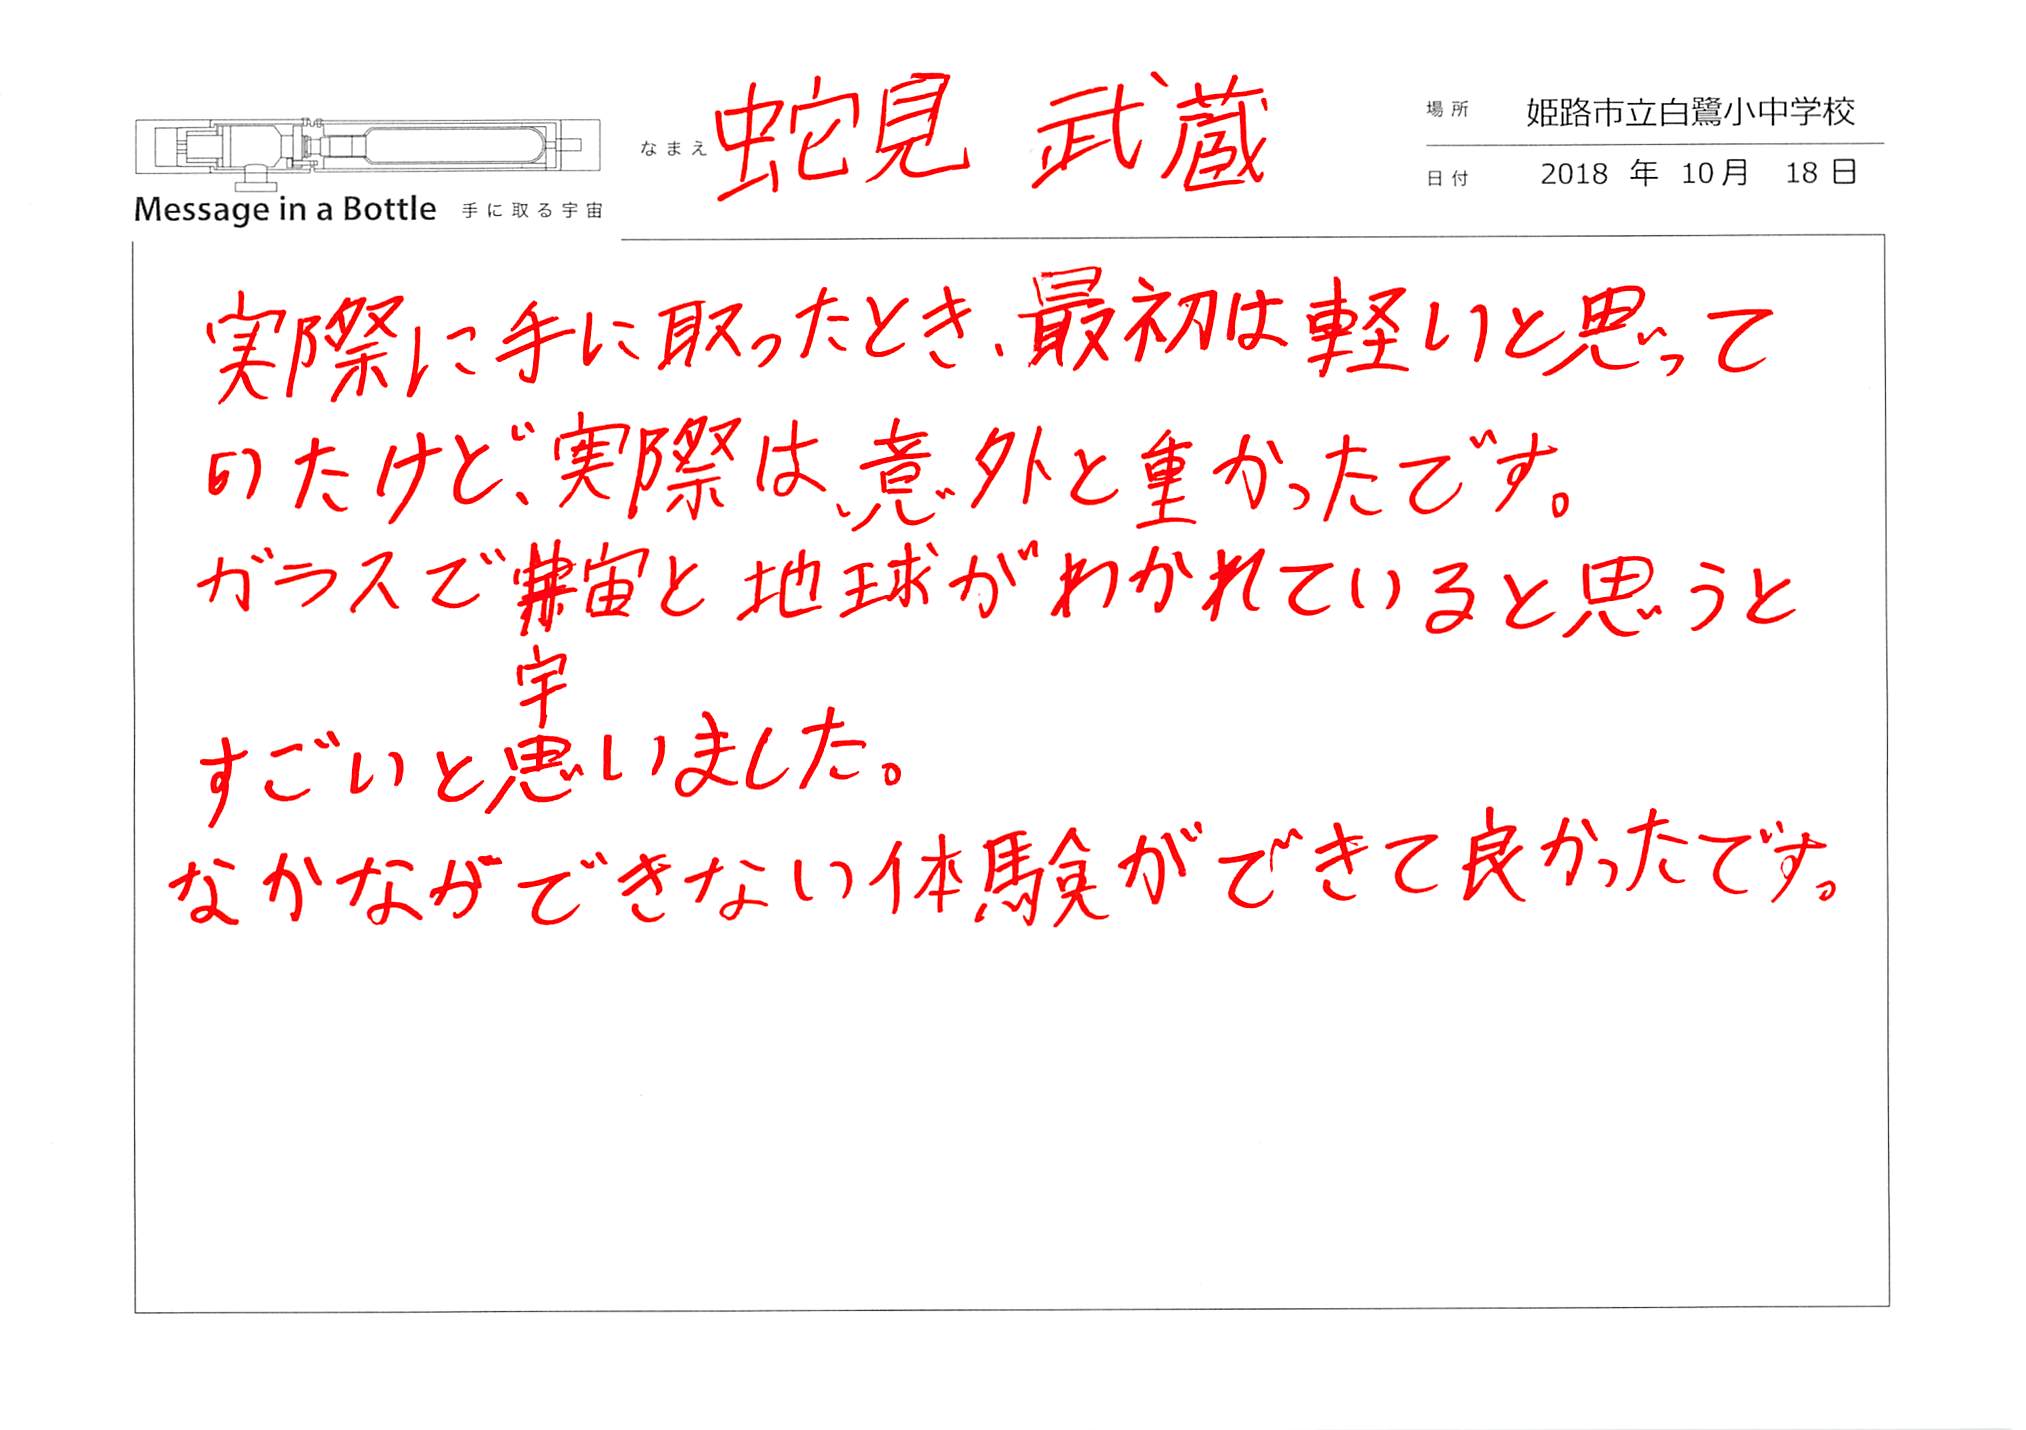 なまえ 蛇見 武蔵
場所 姫路市立白鷺小中学校
日付 2018 年 10 月 18 日
Message in a Bottle 手に取る宇宙
実際に手に取ったとき、最初は軽いと思って
いたけど、実際は意外と重かったです。
ガラスで宇宙と地球がわかれていると思うと
すごいと思いました。
なかなかできない体験ができて良かったです。